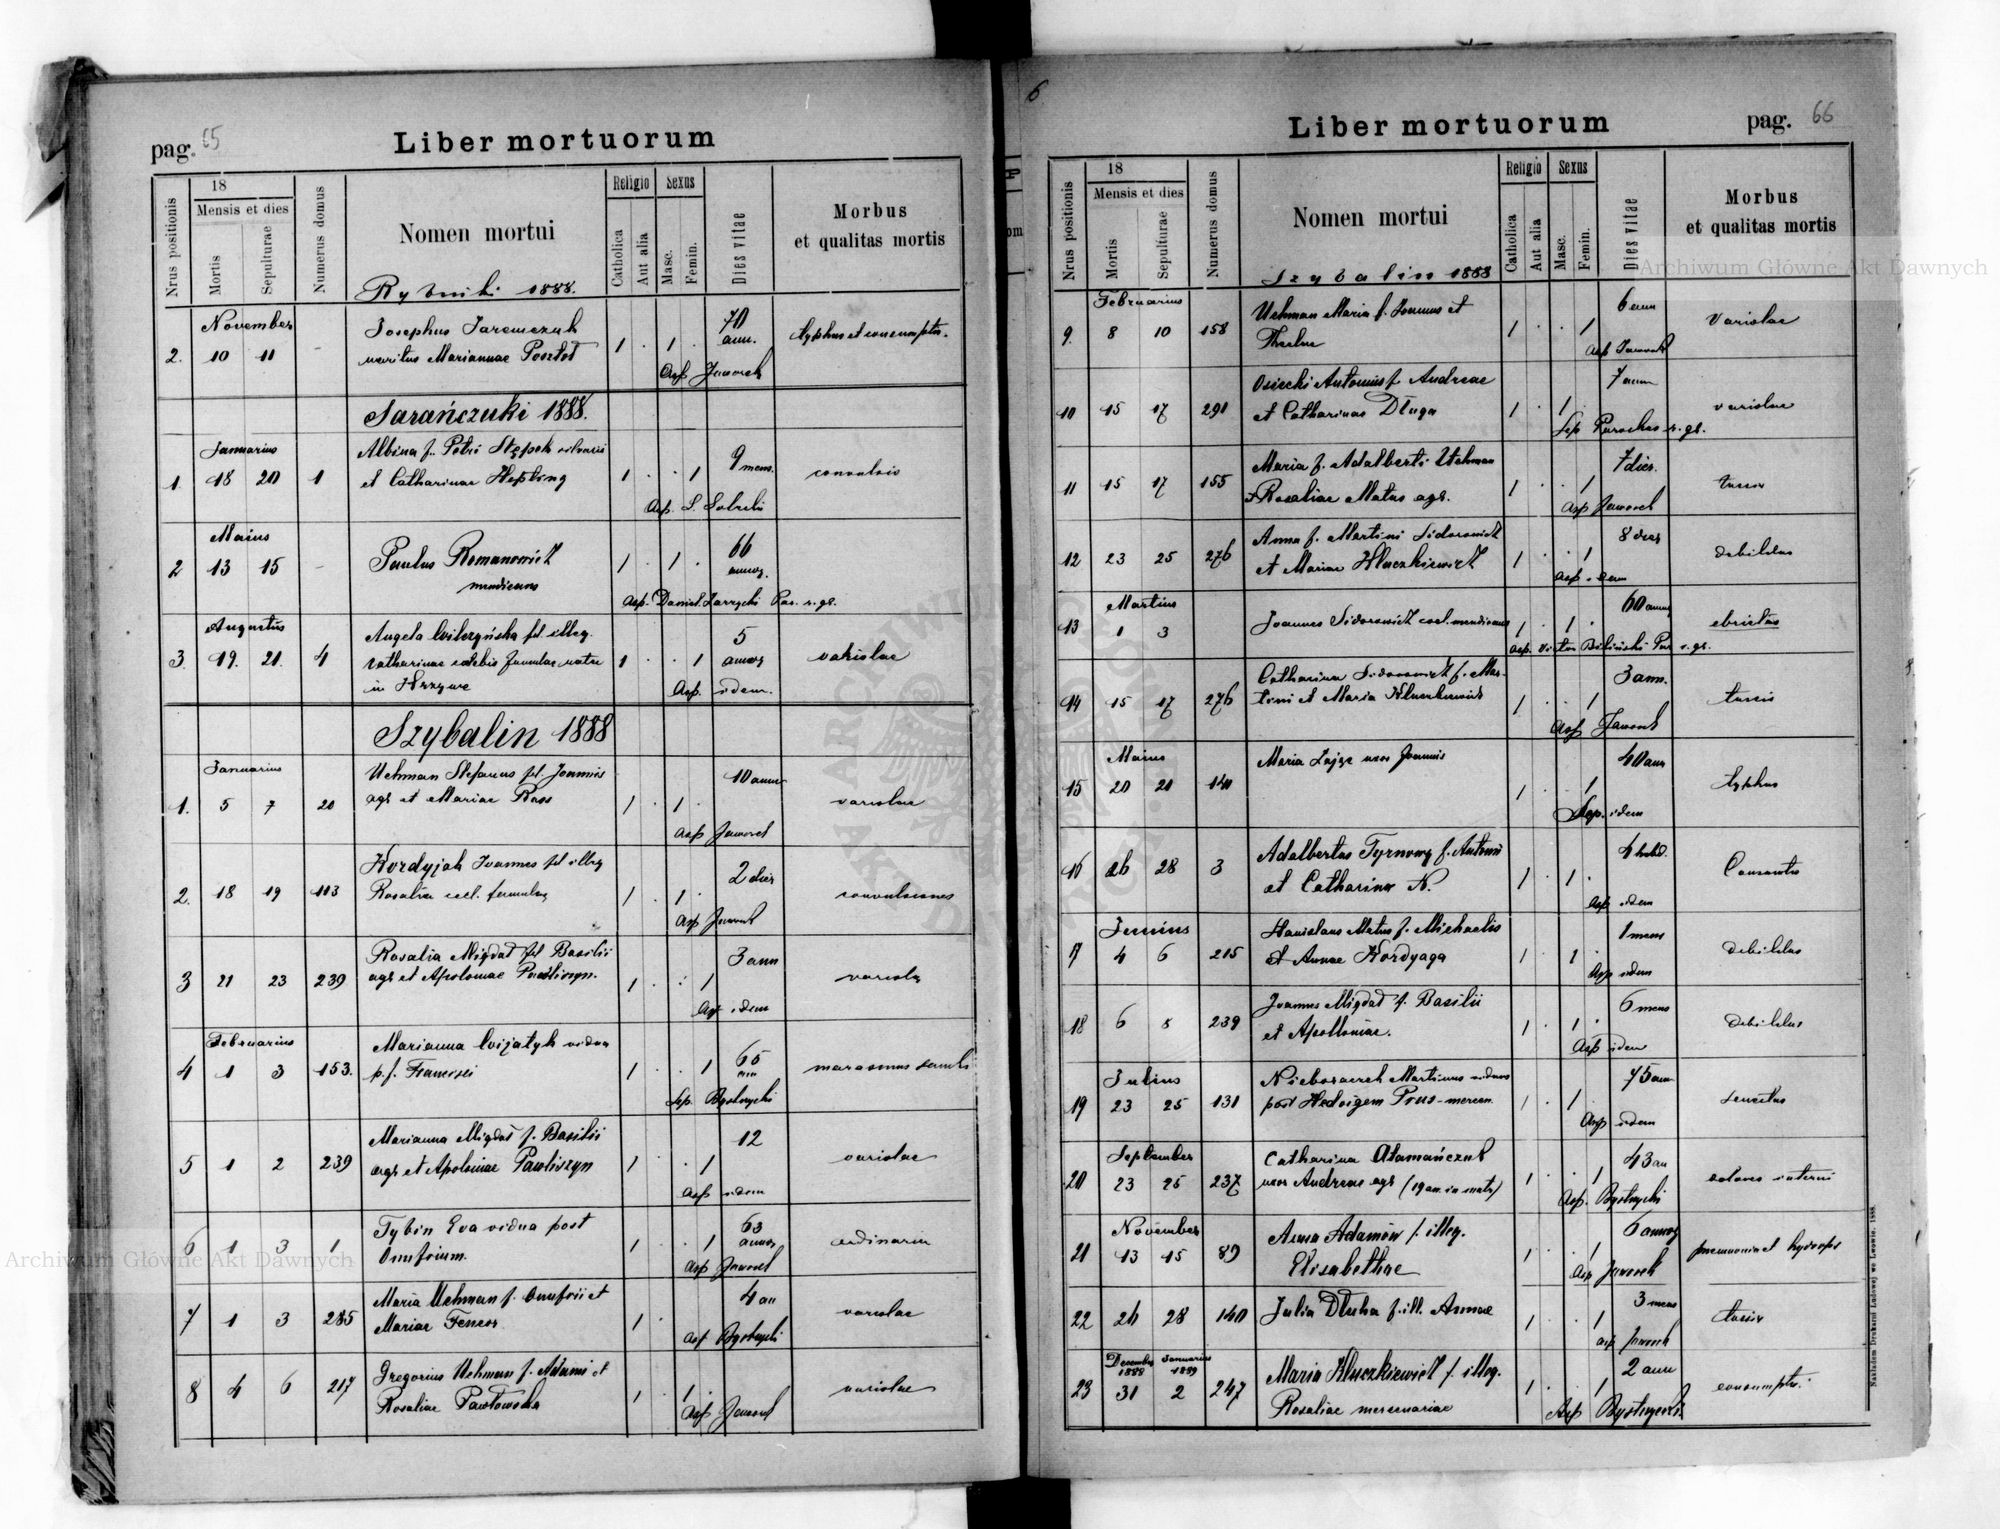 pag. 65
Liber mortuorum
Nrus positionis
18
Mensis et dies
Mortis
Sepulturae
Numerus domus
Nomen mortui
Religio
Catholica
Aut alia
Sexus
Masc.
Femin.
Dies vitae
Morbus
et qualitas mortis
Rybniki 1888.
November
2. 10 11 - Josephus Jaremczuk 1 . 1 . 70 ann. typhus et consumptio.
maritus Mariannae
Asp Jaworek
Sarańczuki 1888.
Januarius
1. 18 20 1 Albina f. Petri Stępek 1 . . 1 9 mens. convulsio
et Catharinae Hepling
Asp. S.
Maius
2 13 15 - Paulus Romanowicz 1 . 1 . 66 annor.
mendicans
Asp. Daniel. Par. r. gr.
Augustus
3. 19. 21. 4 Angela fil. illeg. 1 . . 1 5 annor variolae
Catharinae caelebis famulae natae
in
Asp. idem.
Szybalin 1888
Januarius
1. 5 7 20 Uchman Stefanus fil. Joannis 1 . 1 . 10 ann variolae
agr et Mariae Rass
Asp Jaworek
2. 18 19 113 Kordyjak Joannes fil illeg 1 . 1 . 2 dies convulsiones
Rosaliae cael. famulae
Asp Jaworek
3 21 23 239 Rosalia Migdał fil Basilii 1 . . 1 3 ann variola
agr et Apoloniae Pawliszyn.
Asp idem
Februarius
4 1 3 153. Marianna vidua 1 . . 1 65 ann marasmus senilis
p. f. Francisci
Sep. Bystrzycki
5 1 2 239 Marianna Migdał f. Basilii 1 . . 1 12 variolae
agr et Apoloniae Pawliszyn
Asp idem
6 1 3 1 Tybin Eva vidua post 1 . . 1 63 annor ordinaria
Onufrium.
Asp Jaworek
7 1 3 285 Maria Uchman f. Onufrii et 1 . 4 an variolae
Mariae
Asp Bystrzycki
8 4 6 217 Gregorius Uchman f. Adami et 1 . 1 . variolae
Rosaliae Pawłowska
Asp Jaworek
6
Liber mortuorum
pag. 66
Nrus positionis
18
Mensis et dies
Mortis
Sepulturae
Numerus domus
Nomen mortui
Religio
Catholica
Aut alia
Sexus
Masc.
Femin.
Dies vitae
Morbus
et qualitas mortis
Szybalin 1888
Februarius
9. 8 10 158 Uchman Maria f. Joannis et 1 . . 1 6 ann Variolae
Theclae
Asp Jaworek
10 15 17 291 Osiecki Antonius f. Andreae 1 . 1 . 7 ann variolae
et Catharinae Długa
Sep Parochus r. gr.
11 15 17 155 Maria f. Adalberti Uchman 1 . . 1 7 dies. tussis
et Rosaliae Matus agr.
Asp Jaworek
12 23 25 276 Anna f. Martini Sidorowicz 1 . . 1 8 dies debilitas
et Mariae Kluczkiewicz
Asp idem
Martius
13 1 3 Joannes Sidorowicz cael. mendicans 1 . 1 . 60 annor ebrietas
Asp. Victor Biliński Par r. gr.
14 15 17 276 Catharina Sidorowicz f. Mar- 1 . . 1 3 ann. tussis
tini et Maria Kluczkiewicz
Asp Jaworek
Maius
15 20 21 140 Maria uxor Joannis 1 . . 1 40 ann typhus
Asp. idem
16 26 28 3 Adalbertus Tyrnowy f. Antonii 1 . 1 . 4 hebd.
et Catharinae N.
Asp idem
Junius
17 4 6 215 Stanislaus Matus f. Michaelis 1 . 1 . 1 mens debilitas
et Annae Kordyaga
Asp idem
18 6 8 239 Joannes Migdał f. Basilii 1 . 1 . 6 mens debilitas
et Apolloniae.
Asp idem
Julius
19 23 25 131 Martinus viduus 1 . 1 . 75 ann senectus
post Hedvigem Prus - mercen.
Asp idem
September
20 23 25 237 Catharina Atamańczuk 1 . . 1 43 an dolores interni
uxor Andreae agr (19 an. in matr)
Asp. Bystrzycki
November
21 13 15 89 Anna Adamów f. illeg. 1 . . 1 6 annor pneumonia et hydrops
Elisabethae
Asp Jaworek
22 26 28 140 Julia Dłuha f. ill. Annae 1 . . 1 3 mens tussis
Asp Jaworek
December 1888 Januarius 1889
23 31 2 247 Maria Kluczkiewicz f. illeg. 1 . . 1 2 ann consumptio.
Rosaliae mercenariae
Asp Bystrzycki
Nakładem Drukarni Ludowej we Lwowie. 1888.
Archiwum Główne Akt Dawnych
Archiwum Główne Akt Dawnych